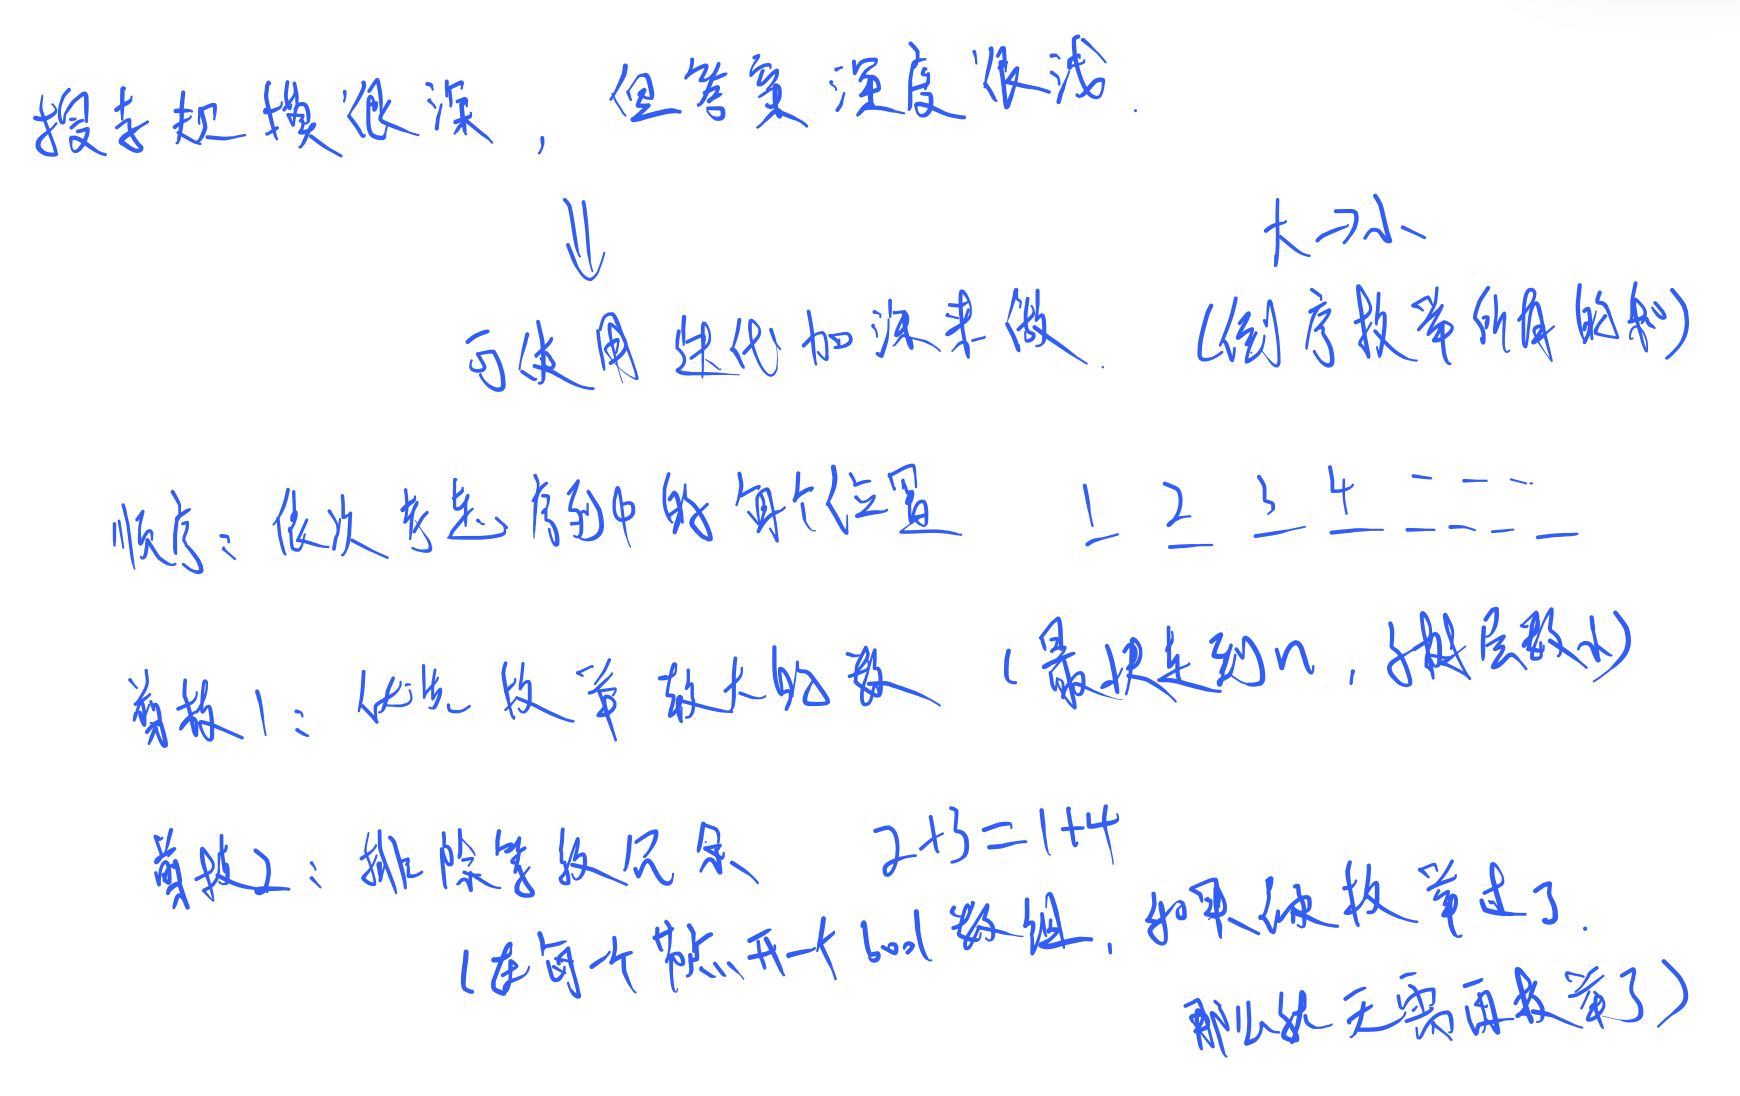 搜索规模很深，但答案深度很浅.
⇓
大→小
可使用迭代加深来做. (倒序枚举所有的和)
顺序：依次考虑序列中的每个位置 1 2 3 4
剪枝1：优先枚举较大的数 (最快达到n，分支层数小)
剪枝2：排除等效冗余 2+3=1+4
(在每个节点开一个bool数组，如果他枚举过了.
那么就无需再枚举了)